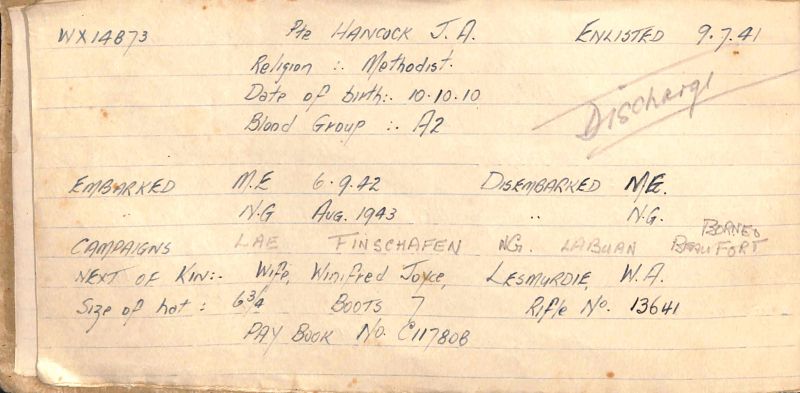 WX14873 Pte HANCOCK J.A. ENLISTED 9.7.41
Religion :. Methodist.
Date of birth:. 10.10.10
Discharge
Blood Group :. A2
EMBARKED M.E 6.9.42 DISEMBARKED M.E.
N.G AUG. 1943 " N.G.
BORNEO
CAMPAIGNS LAE FINSCHAFEN NG. LABUAN BEAUFORT
NEXT OF KIN:. Wife, Winifred Joyce, LESMURDIE, W.A.
Size of hat : 6 3/4 BOOTS 7 Rifle No. 13641
PAY BOOK No. C117808